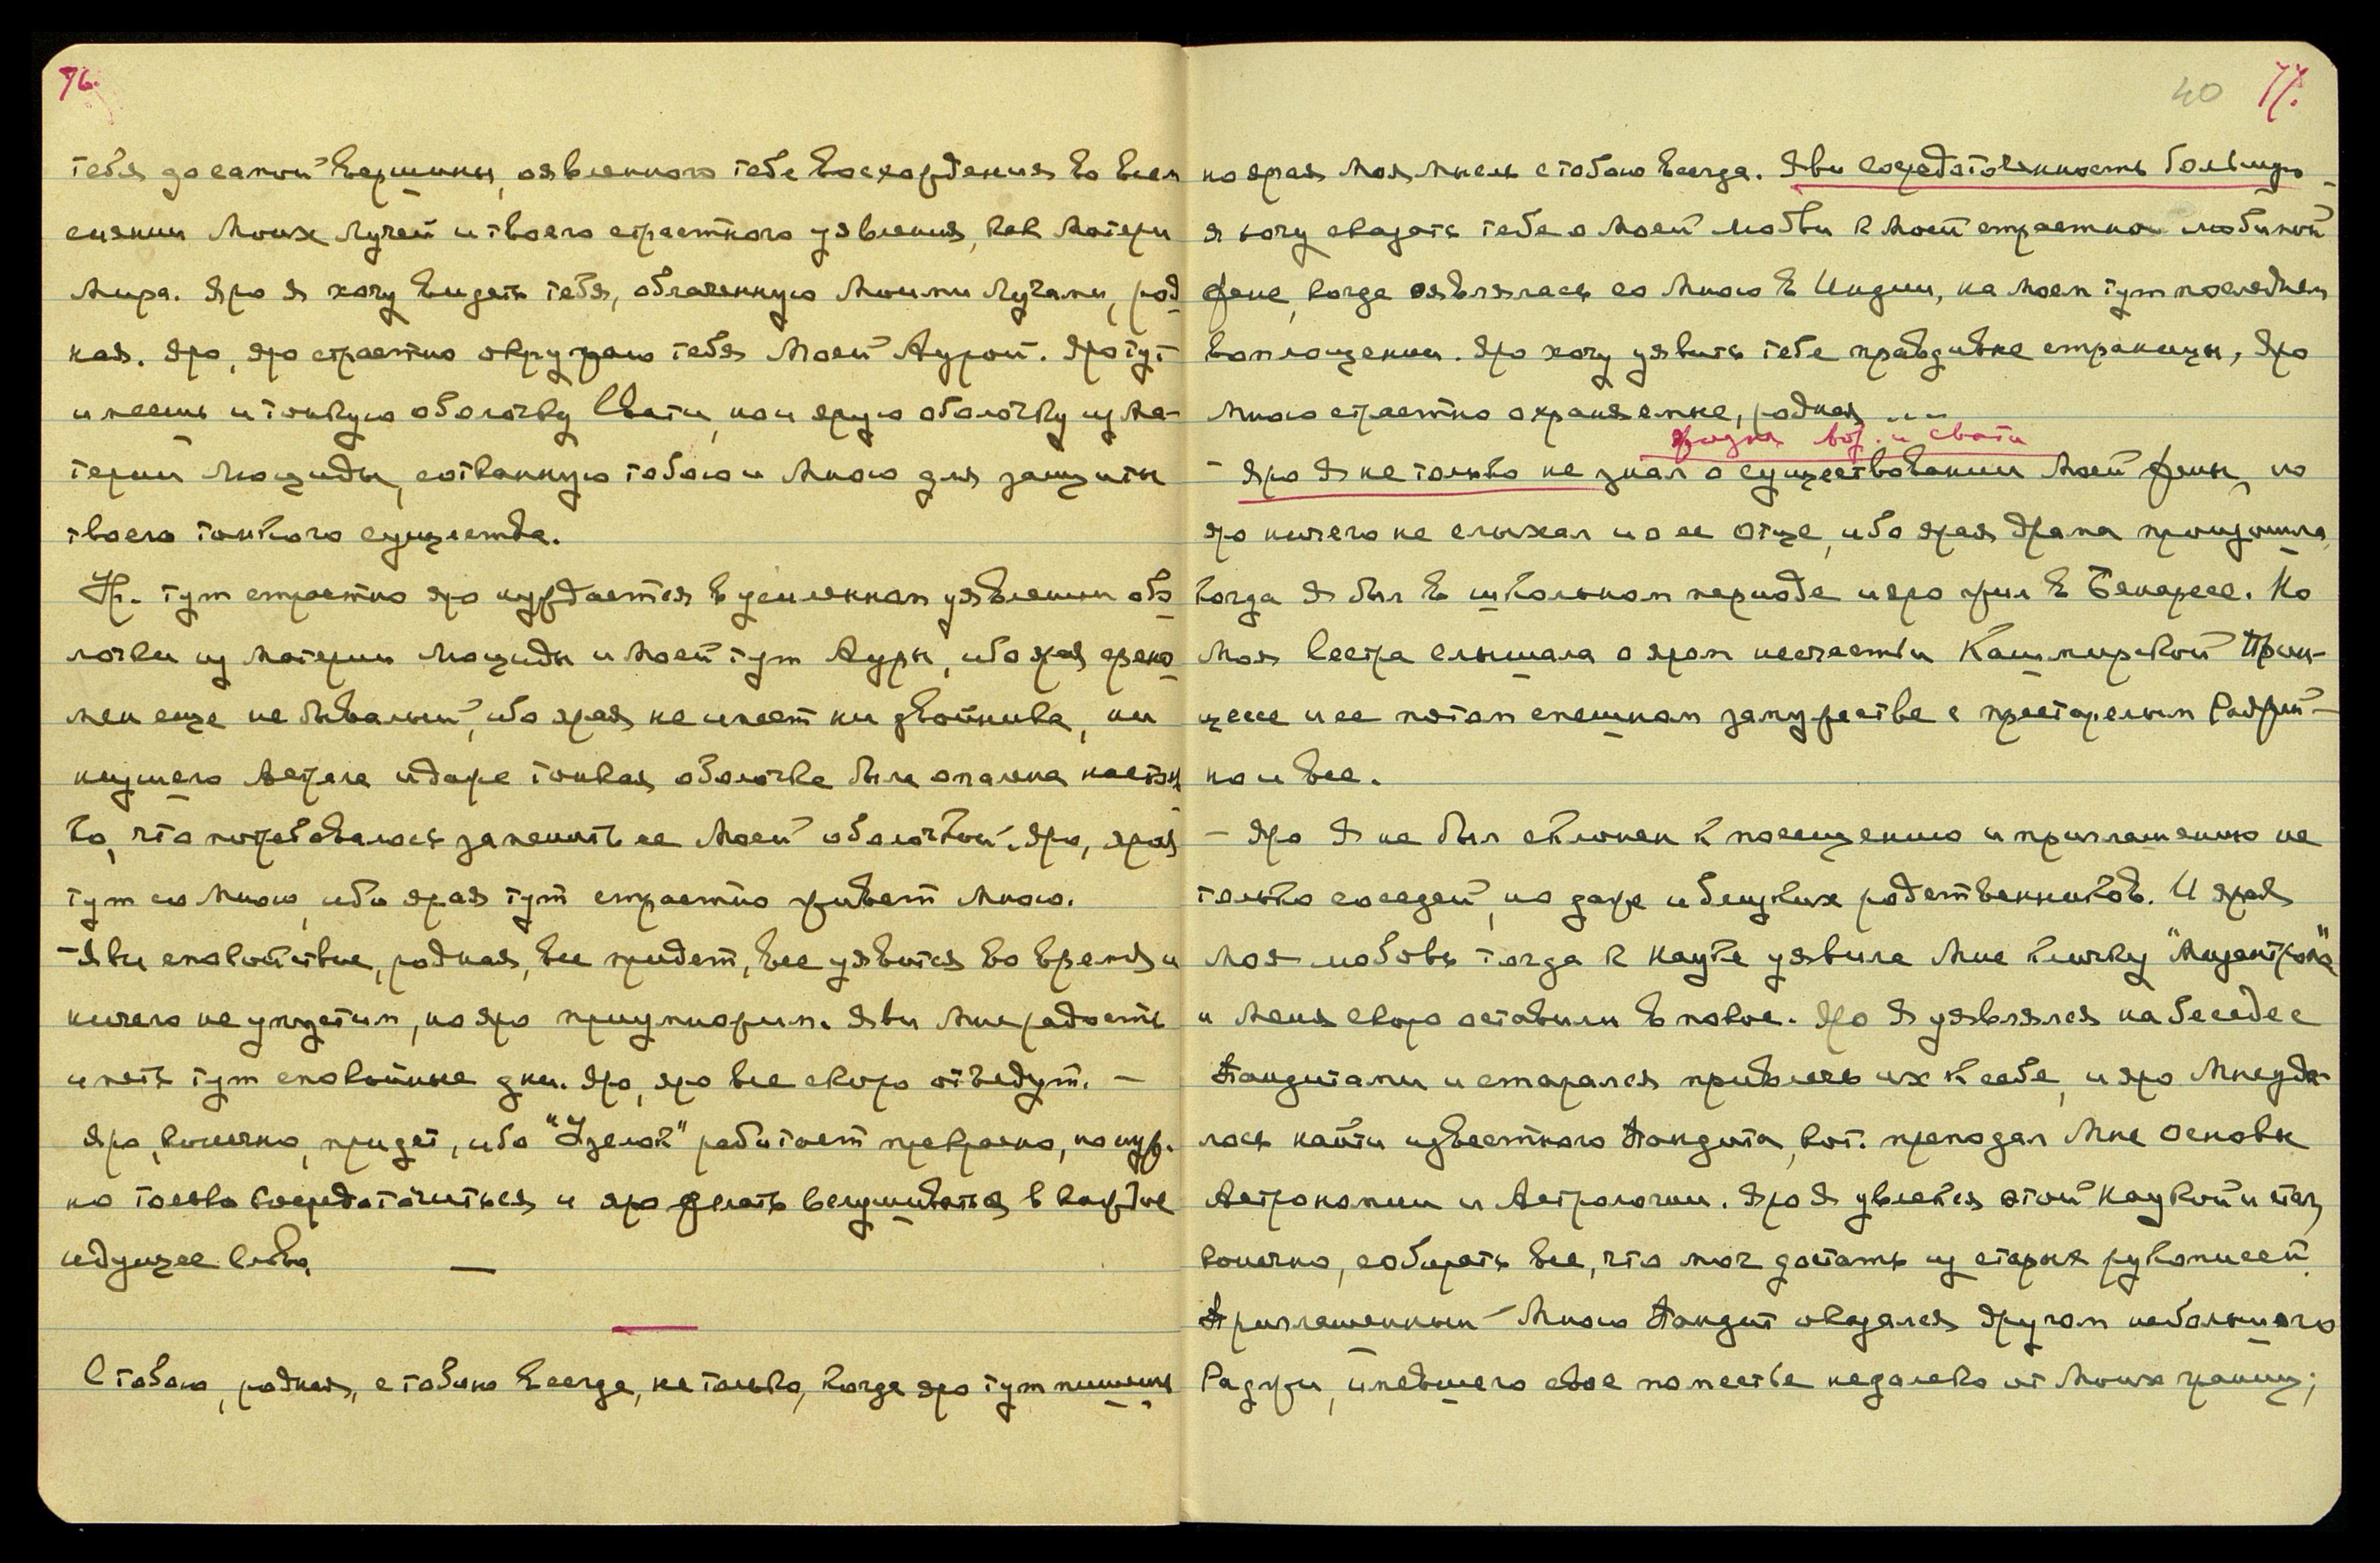 76.
тебя до самой вершины, оявленного тебе восхождения во всем
сиянии Моих Лучей и твоего страстного уявления, как Матери
Мира. Яро Я хочу видеть тебя, облаченную Моими Лучами, род
ная. Яро, яро страстно окружаю тебя Моей Аурой. Яро тут
имеешь и тонкую оболочку Свати, но и ярую оболочку из Ма-
терии Люциды, сотканную тобою и Мною для защиты
твоего тонкого существа.
Ур. тут страстно яро нуждается в усиленном уявлении обо
лочки из Материи Люциды и Моей тут Ауры, ибо ярая фено
мен еще не бывалый, ибо ярая не имеет ни двойника, ни
низшего Астрала и даже тонкая оболочка была опалена настоль
ко, что потребовалось заменить ее Моей оболочкой. Яро, ярая
тут со Мною, ибо ярая тут страстно живет Мною.
- Яви спокойствие, родная, все придет, все уявится во время и
ничего не упустим, но яро приумножим. Яви Мне радость
иметь тут спокойные дни. Яро, яро все скоро отъедут. —
Яро, конечно, придет, ибо "Узелок" работает прекрасно, но нуж.
но только сосредоточиться и яро желать вслушиваться в каждое
идущее слово. —
С тобою, родная, с тобою всегда, не только, когда яро тут пишешь
40 77.
но ярая Моя мысль с тобою всегда. Яви сосредоточенность большую -
Я хочу сказать тебе о Моей любви к Моей страстно любимой
Жене, когда оявлялась со Мною в Индии, на Моем тут последнем
воплощении. Яро хочу уявить тебе правдивые страницы, яро
Мною страстно охраняемые, родная ...
жизня воз. и Свати
- Яро Я не только не знал о существовании Моей Жены, но
яро ничего не слыхал и о ее Отце, ибо ярая драма произошла,
когда Я был в школьном периоде и яро жил в Бенаресе. Но
Моя Сестра слышала о яром несчастьи Кашмирской Прин-
цессе и ее потом спешном замужестве с престарелым Раджой -
но и все.
- Яро Я не был склонен к посещению и приглашению не
только соседей, но даже и близких родственников. И ярая
Моя любовь тогда к Науке уявила Мне кличку "Мизантропа"
и Меня скоро оставили в покое. Яро Я уявлялся на беседе с
Пандитами и старался привлечь их к себе, и яро Мне уда-
лось найти известного Пандита, кот. преподал Мне Основы
Астрономии и Астрологии. Яро Я увлекся этой Наукой и стал,
конечно, собирать все, что мог достать из старых рукописей.
Приглашенный Мною Пандит оказался другом небольшого
Раджи, имевшего свое поместье недалеко от Моих границ;